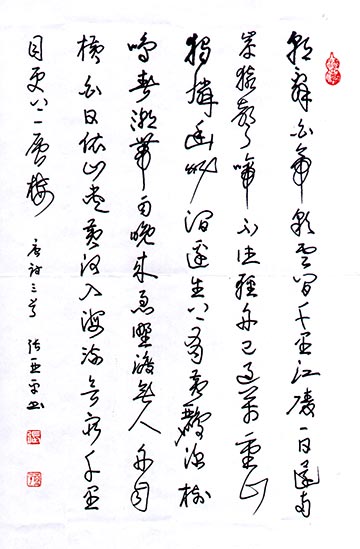 朝辞白帝彩云间千里江陵一日还两
岸猿声啼不住轻舟已过万重山
独怜幽草涧边生上有黄鹂深树
鸣春潮带雨晚来急野渡无人舟自
横白日依山尽黄河入海流欲穷千里
目更上一层楼
唐诗三首 张亚平书